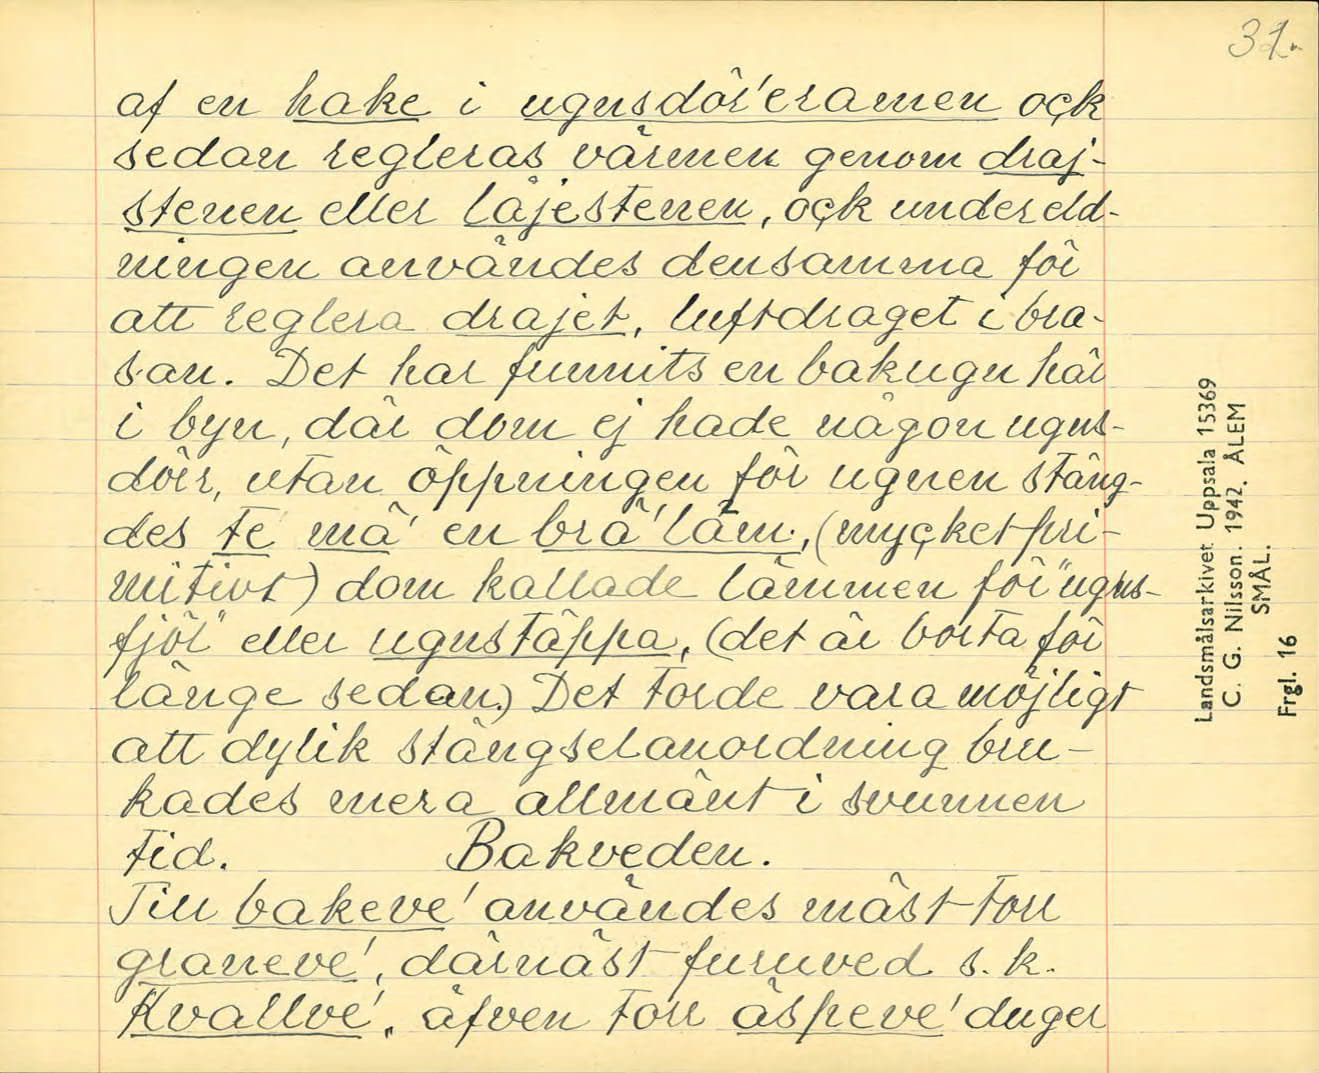 31.
af en hake i ugnsdör'eramen oçk
sedan regleras värmen genom draj-
stenen eller läjestenen, oçk under eld-
ningen användes densamma för
att reglera drajet, luftdraget i bra-
san. Det har funnits en bakugn här
i byn, där dom ej hade någon ugns-
dörr, utan öppningen för ugnen stäng-
des te mä' en brä'läm., (myçket pri-
mitivt) dom kallade lämmen för "ugns-
fjöl" eller ugnstäppa, (det är borta för
länge sedan.) Det torde vara möjligt
att dylik stängselanordning bru-
kades mera allmänt i svunnen
tid. Bakveden.
Till bakeve' användes mäst torr
graneve', därnäst furuved s.k.
Kvallve', äfven torr äspeve' duger
Landsmålsarkivet Uppsala 15369
C. G. Nilsson. 1942. ÅLEM
SMÅL.
Frgl. 16